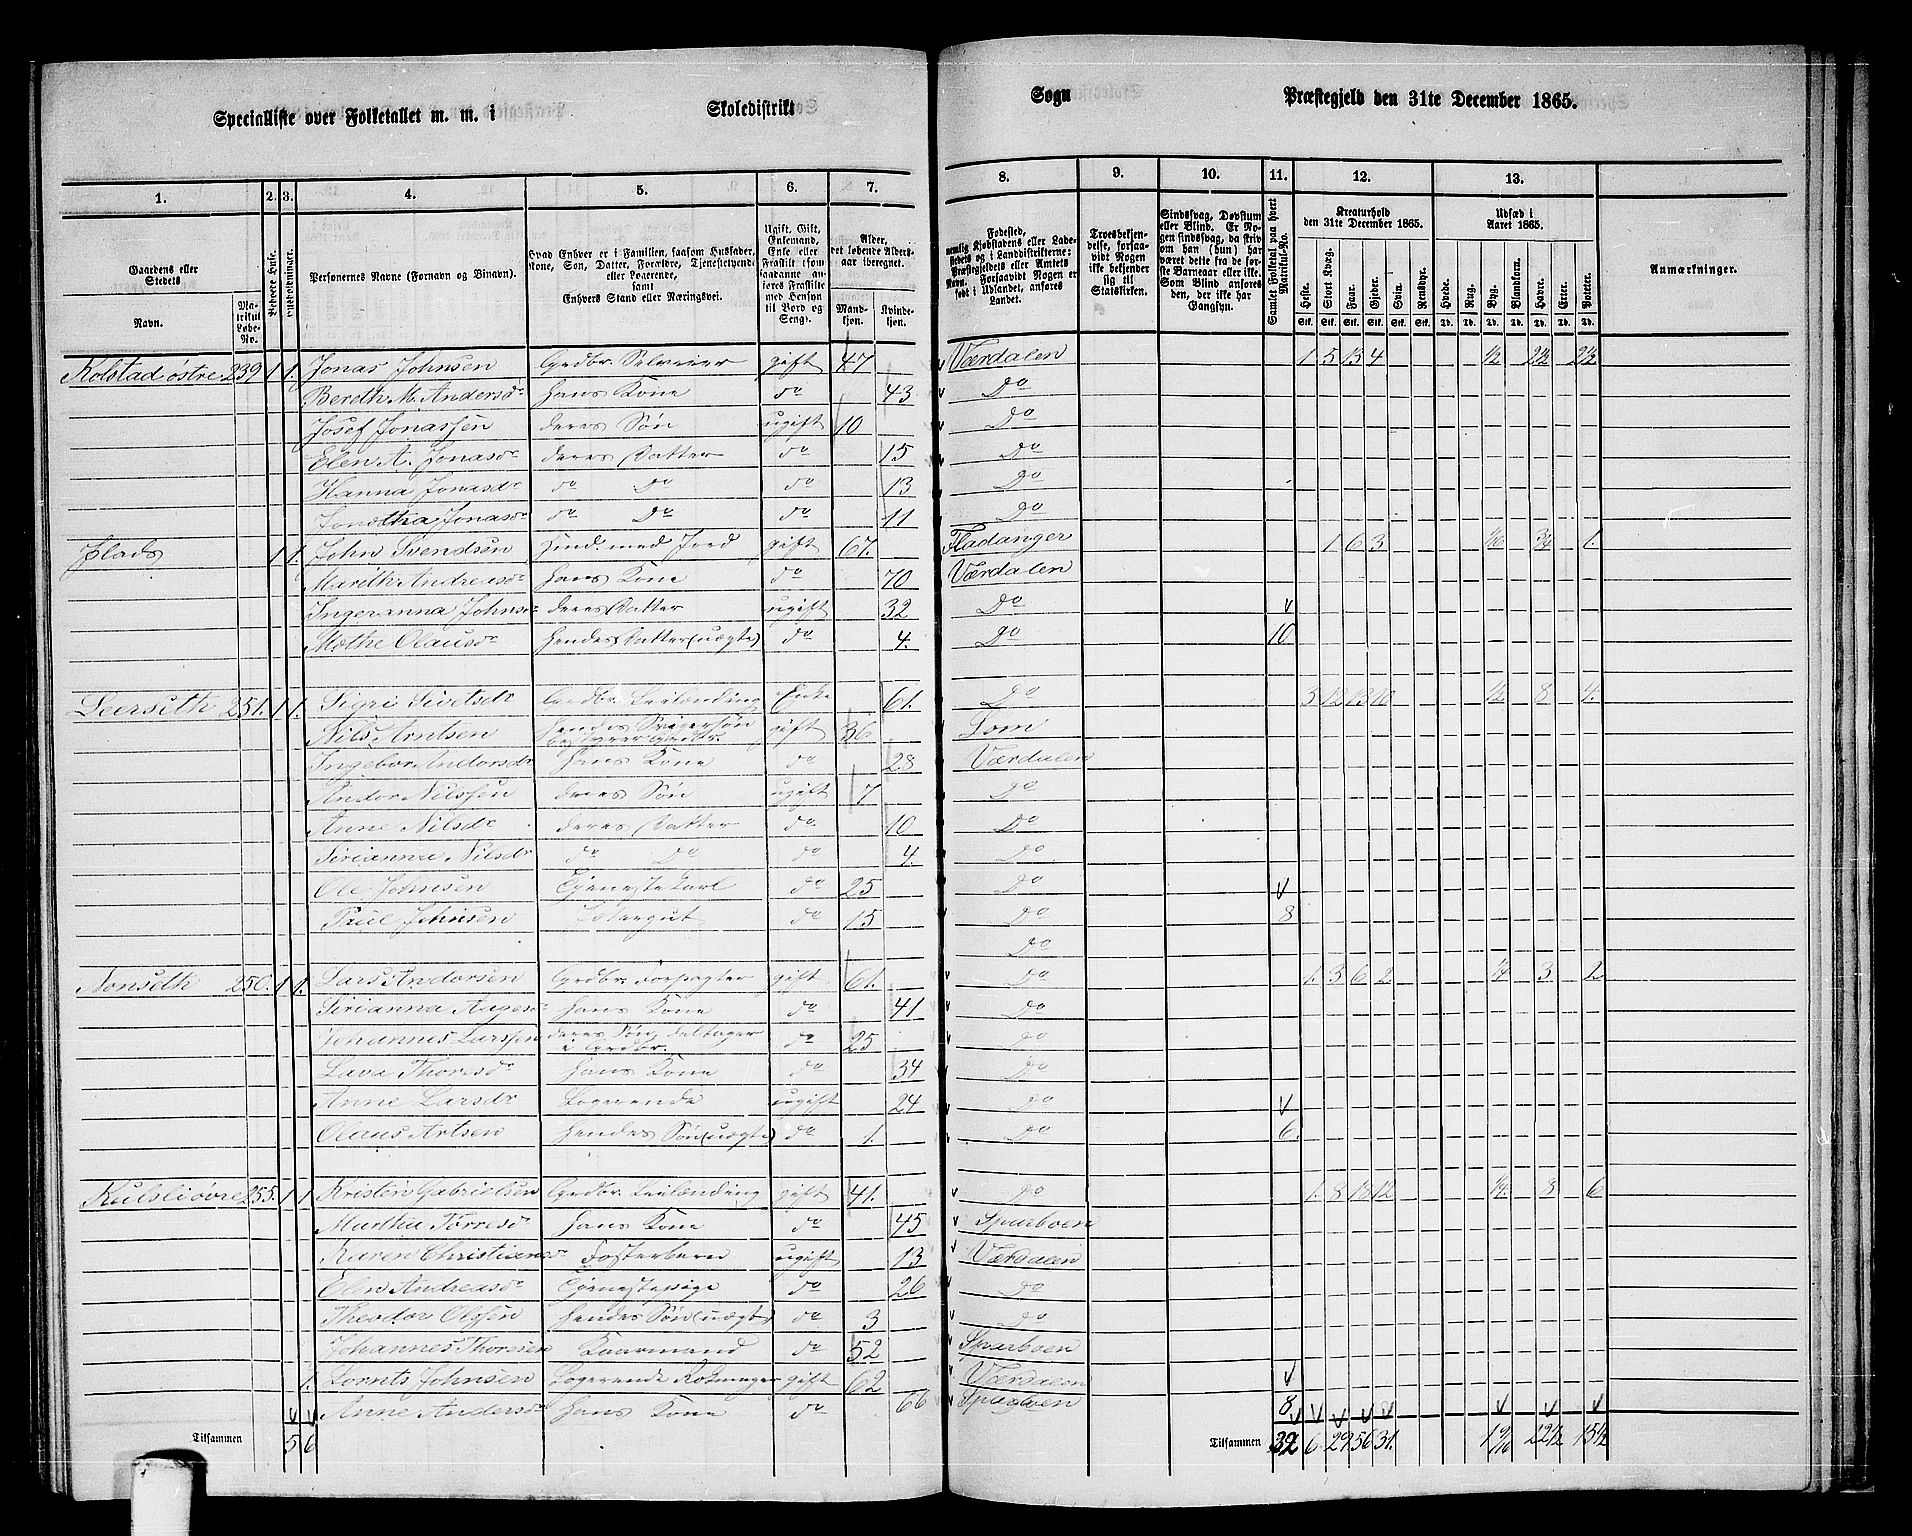 Specialliste over Folketallet m. m. i Skoledistrikt Sogn Præstegjeld den 31te December 1865.
1. 2. 3. 4. 5. 6. 7. 8. 9. 10. 11. 12. 13.
Gaardens eller Stedets Navn. Matrikul Løbe-No. Beboede Huse. Huusholdninger. Personernes Navne (Fornavn og Binavn).
Hvad Enhver er i Familien, saasom Husfader, Kone, Søn, Datter, Forældre, Tjenestetyende eller Logerende, samt Enhvers Stand eller Næringsvei.
Ugift, Gift, Enkemand, Enke eller Fraskilt
Alder, det løbende Aldersaar iberegnet. Mandkjøn. Kvindekjøn.
Kreaturhold den 31te December 1865. Heste. Stort Kvæg. Faar. Gjeder. Svin. Rensdyr.
Udsæd i Aaret 1865. Hvede. Rug. Byg. Blandkorn. Havre. Erter. Poteter.
Anmærkninger.
Kolstad østre 239 1 1. Jonas Johnsen Grdbr. Selveier gift 47 Værdalen 1 5 13 4 ½ 2½ 2½
Bereth M. Andersdr hans Kone do 43 Do
Josef Jonassen deres Søn ugift 10 Do
Elen A. Jonasdr deres Datter do 15 Do
Hanna Jonasdr do Do do 13 Do
Jonetha Jonasdr do Do do 11 Do
Plads 1 1. John Svendsen Husm. med Jord gift 67. Fladanger 1 6 3 1/6 3/4 1.
Mareth Andreasdr hans Kone do 70 Værdalen
Ingeranna Johnsdr deres Datter ugift 32 Do
Mathe Olausdr hendes Datter (uægte) do 4. Do 10
Leerseth 251. 1 1. Sigri Sivertsdr Grdbr. Leilænding Enke 61. Do 3 12 13 10 ½ 8 4.
Nils Arntsen hendes Svigersøn gift 36 Lom
Ingebor Andorsdr hans Kone do 28 Værdalen
Andor Nilssen deres Søn ugift 7 Do
Anne Nilsdr deres Datter do 10 Do
Sirianna Nilsdr do Do do 4. Do
Ole Johnsen Tjenestekarl do 25 Do
Paul Johnsen do 15 Do 8
Do
Nonseth 250. 1 1. Lars Andorsen Grdbr. Forpagter gift 61. Do 1. 3 6 2 ¼ 3 2
Sirianna Aagesdr hans Kone do 41 Do
Johannes Larssen deres Søn deltager i Grdbr. do 25 Do
Lava Thoresdr hans Kone do 34 Do
Anne Larsdr Logerende ugift 24 Do
Olaus Artsen hendes Søn (uægte) do 1. Do 6.
Kulsli øvre 255. 1 1. Kristen Gabrielsen Grdbr. Leilænding gift 41. Do 1. 8 18 12 ¼ 8 6
Martha Torresdr hans Kone do 45 Sparboen
Karen Christiansdr Fosterbarn ugift 13 Værdalen
Elen Andreasdr Tjenestepige do 26 Do
Theodor Olssen hendes Søn (uægte) do 3 Do
Johannes Thoresen Kaarmand do 52 Sparboen
1. Lornts Johnsen Logerende gift 62 Værdalen
Anne Andersdr hans Kone do 66 Sparboen 8
Tilsammen 5 6 Tilsammen 32 6 29 56 31. 22½ 15½